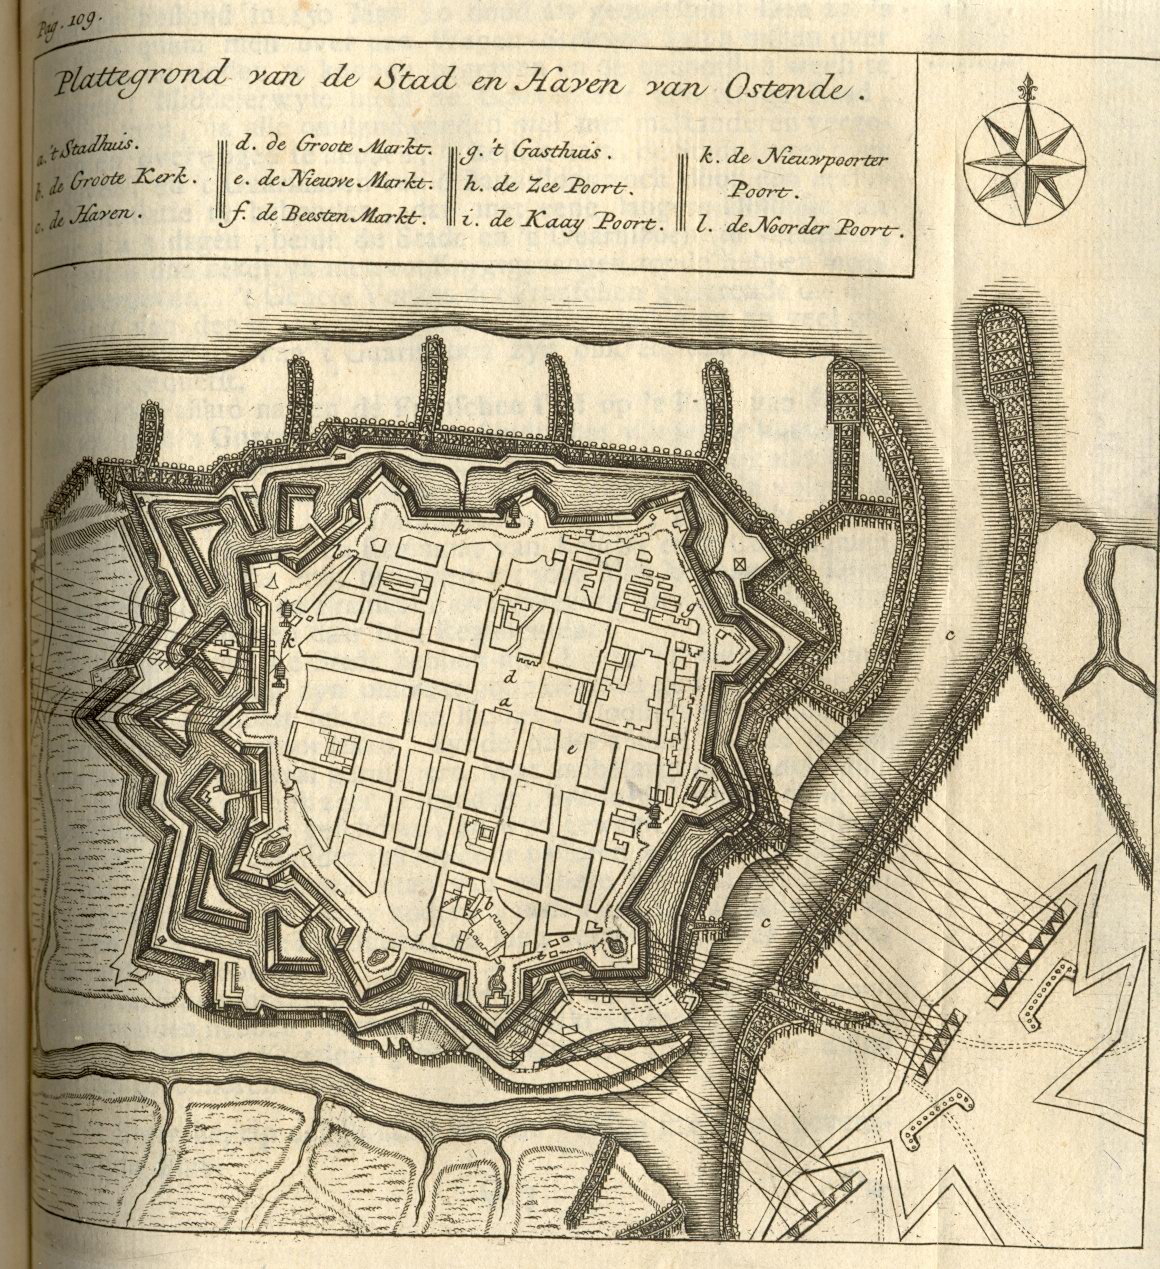 Pag. 109.
Plattegrond van de Stad en Haven van Ostende.
a. 't Stadhuis.
b. de Groote Kerk.
c. de Haven.
d. de Groote Markt.
e. de Nieuwe Markt.
f. de Beesten Markt.
g. 't Gasthuis.
h. de Zee Poort.
i. de Kaay Poort.
k. de Nieuwpoorter
Poort.
l. de Noorder Poort.
h
g
k
c
d
a
e
b
c